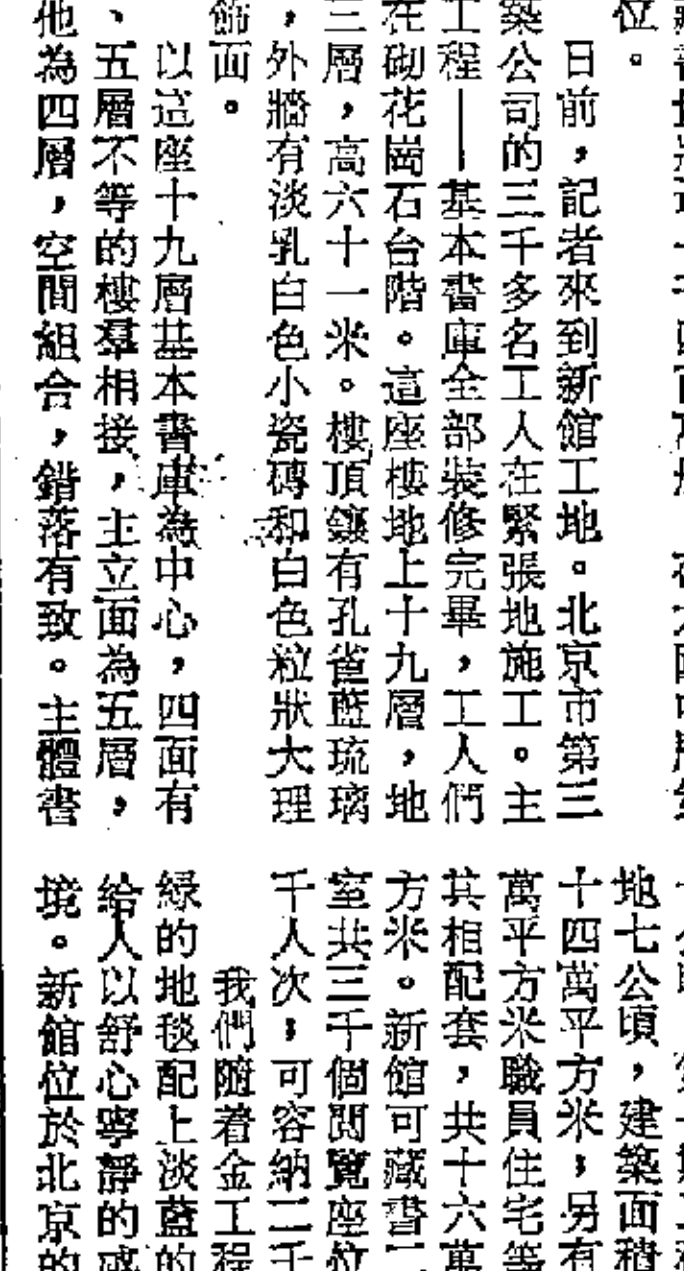 位。
日前，記者來到新館工地。北京市第三
築公司的三千多名工人在緊張地施工。主
工程——基本書庫全部裝修完畢，工人們
在砌花崗石台階。這座樓地上十九層，地
三層，高六十一米。樓頂鑲有孔雀藍琉璃
，外牆有淡乳白色小瓷磚和白色粒狀大理
飾面。
以這座十九層基本書庫為中心，四面有
、五層不等的樓羣相接，主立面為五層，
他為四層，空間組合，錯落有致。主體書
地七公頃，建築面積
十四萬平方米，另有
萬平方米職員住宅等
其相配套，共十六萬
方米。新館可藏書二
室共三千個閱覽座位
千人次，可容納二千
我們隨着金工程
綠的地毯配上淡藍的
給人以舒心寧靜的感
境。新館位於北京的